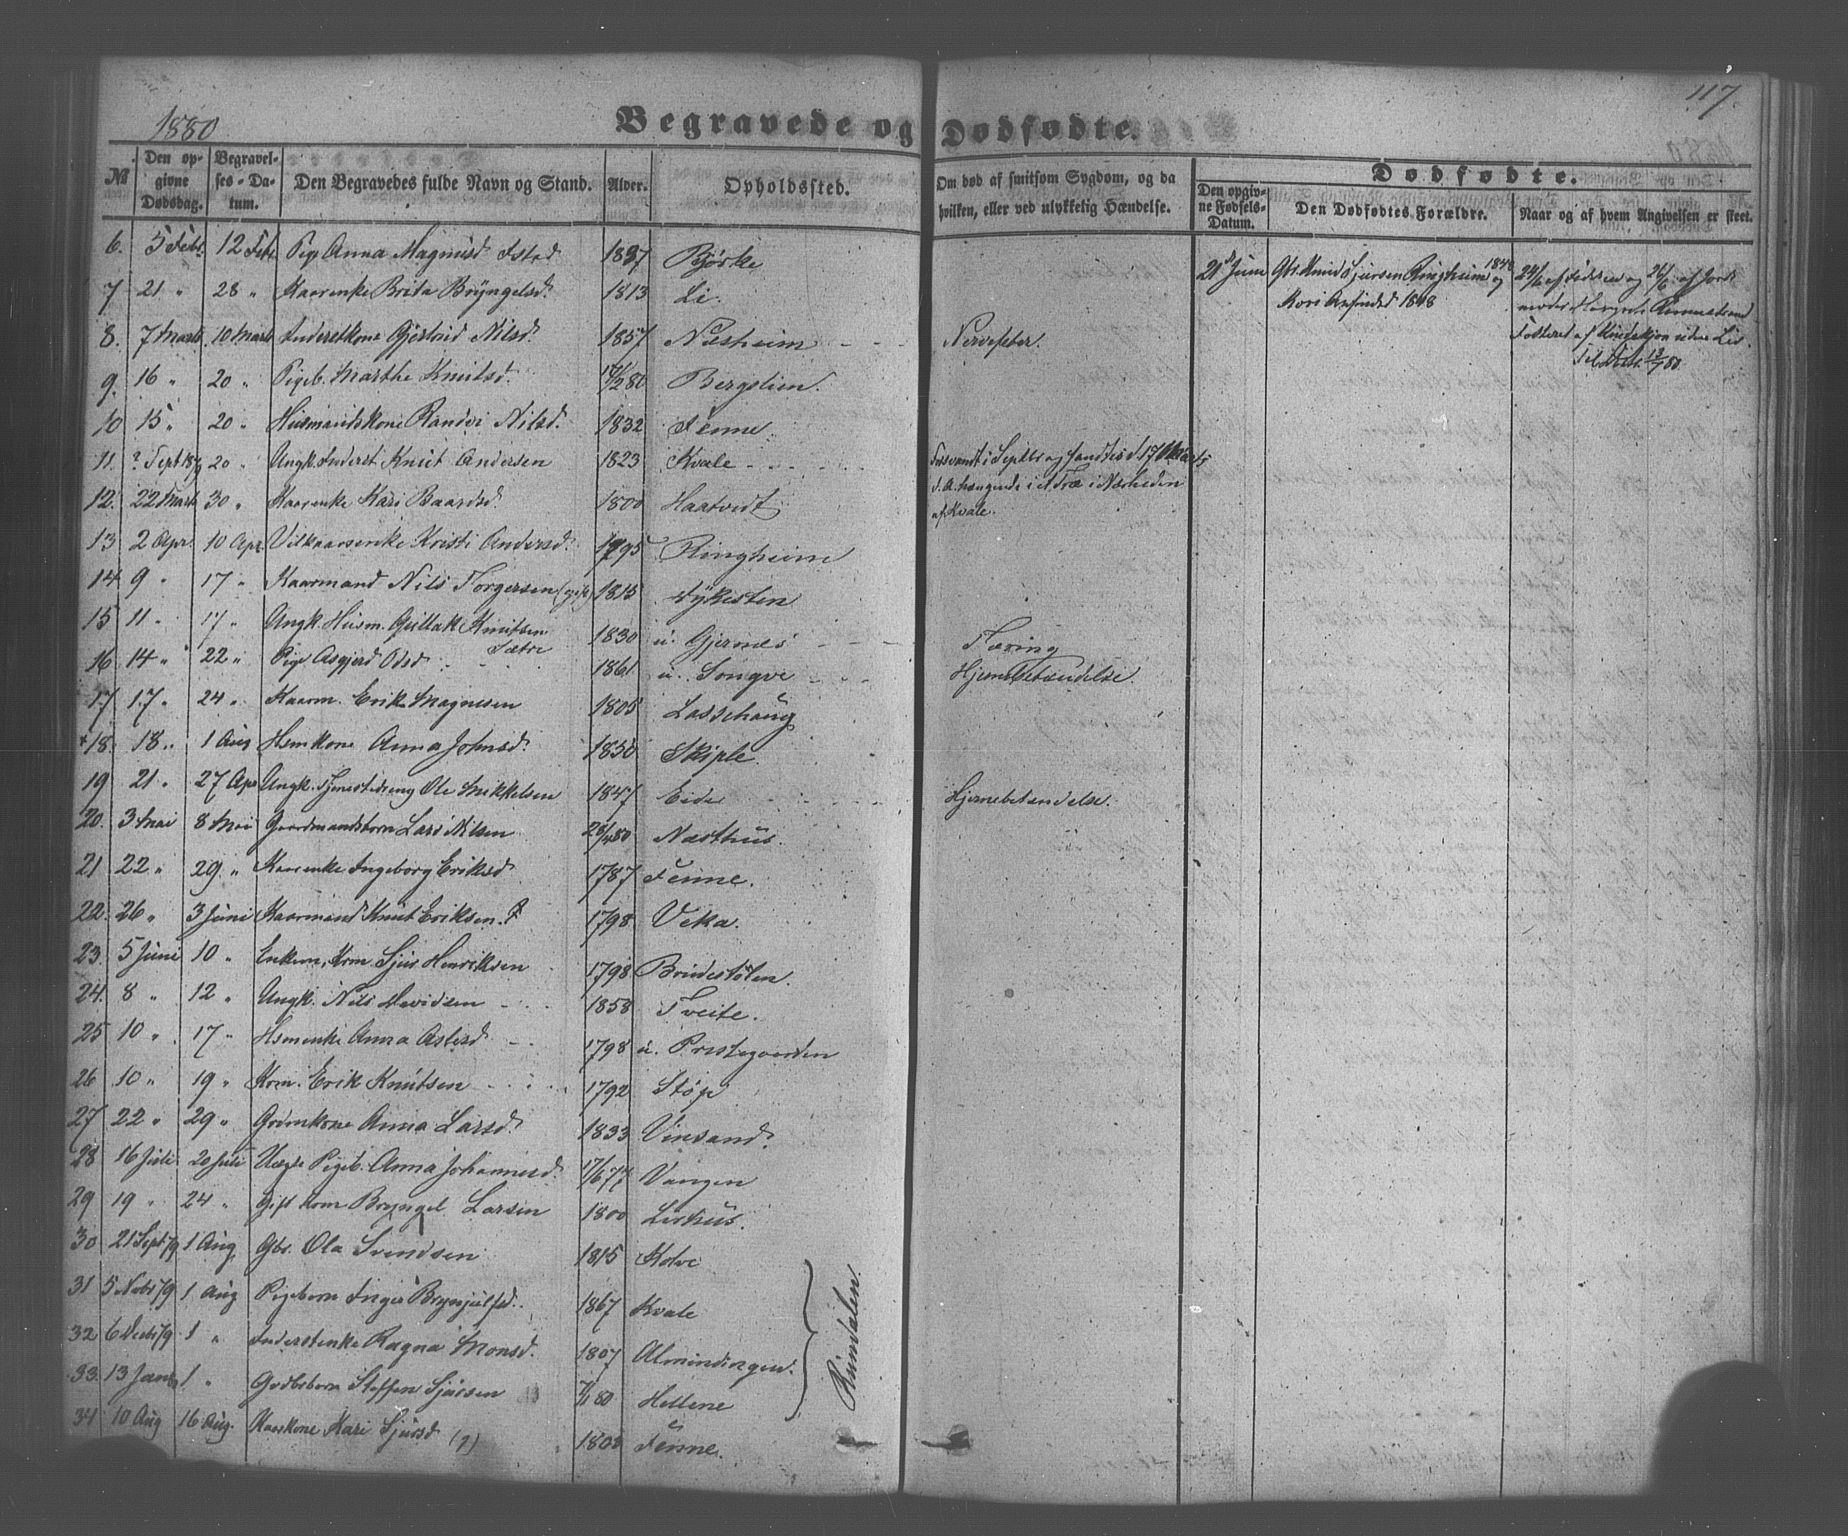 117.
1880
Begravede og Dødfødte.
№
Den opgivne Dødsdag.
Begravelses-Datum.
Den Begravedes fulde Navn og Stand.
Alder.
Opholdssted.
Om død af smitsom Sygdom, og da hvilken, eller ved ulykkelig Hændelse.
Dødfødte.
Den opgivne Fødsels-Datum.
Den Dødfødtes Forældre.
Naar og af hvem Angivelsen er skeet.
6. 5 Febr. 12 Febr. Pige Anna Magnusd Istad 1837 Bjørke
21 Juni Gbr. Knud Sjursen Ringheim 1848 og
Kari 1848
24/6 af Faderen og 26/6 af Jord
moder
Fosteret af
7 21 " 28 " Kaarenke Brita Bryngelsd. 1813 Li.
8. 7 Marts 10 Marts Inderstkone Gjertrud Nilsd. 1857 Næsheim - - - Nervefeber.
9. 16 " 20 " Pigeb. Marthe Knutsd. 80 Bergslien.
10 15 " 20 " Husmandskone Randvi Nilsd. 1832 Fenne.
11. ? Sept 79 20 " Ungk. Inderst Knut Andersen 1823 Kvale - - - Forsvandt i Septbr og fandtes d. 17 Marts
d. A. hængende i et Træ i Nærheden
af Kvale.
12. 22 Marts 30 " Kaarenke Kari Baardsd. 1800 Haatvedt
13 2 Apr. 10 Apr. Vilkaarsenke Kristi Andersd. 1795 Ringheim
14 9 " 17 " Kaarmand Nils Torgersen (gift) 1815 Lykesten
15 11 " 17 " Ungk. Husm. Gullak Knutsen
Sætre 1830 u. Gjernes - - Tæring
16 14 " 22 " Pige Asgjerd Odsd - - 1861 u. Songve - - Hjernebetændelse.
17 17 " 24 " Kaarm. Erik Magnesen 1805 Lassehaug
+18. 18 " 1 Aug Hsmkone Anna Johnsd. 1830 Skiple.
19 21 " 27 Apr Ungk. Tjenestedreng Ole Mikkelsen 1847 Eide Hjernebetændelse.
20. 3 Mai 8 Mai Gaardmandsbarn Lars Nilsen 28/4 80 Næsthus.
21 22 " 29 " Kaarenke Ingeborg Eriksd 1787 Fenne.
22. 26 " 3 Juni Kaarmand Knut Eriksen. 1798 Veka.
23. 5 Juni 10 " Enkem. Krm. Sjur Henriksen 1798 Brudestolen.
24. 8 " 12 " Ungk. Nils Davidsen - - 1858 Tveite.
25 10 " 17 " Hsmenke Anna Aslesd - - 1798 u. Prestegaarden
26 10 " 19 " Krm. Erik Knutsen - - - 1792 Støp
27 22 " 29 " Grdmkone Anna Larsd. 1833 Vinsand.
28 16 Juli 20 Juli Uægte Pigeb. Anna Johannesd. 17/6 77 Vangen
29 19 " 24 " Gift Krm Bryngel Larsen 1800 Lirhus.
30 21 Sept 79 1 Aug Gbr. Ola Svendsen 1815 Kolve
31 5 Novbr 79 1 Aug Pigebarn Inger Brynjulfsd. 1867 Kvale
32 6 Novbr 79 1 " Inderstenke Ragna Monsd. 1807 Almindingen.
33. 13 Janr 1 " Gbrbarn Steffen Sjursen 80 Hellene
Rundalen
34 10 Aug 16 Aug. Kaarkone Kari Sjursd (?) 1808 Fenne.